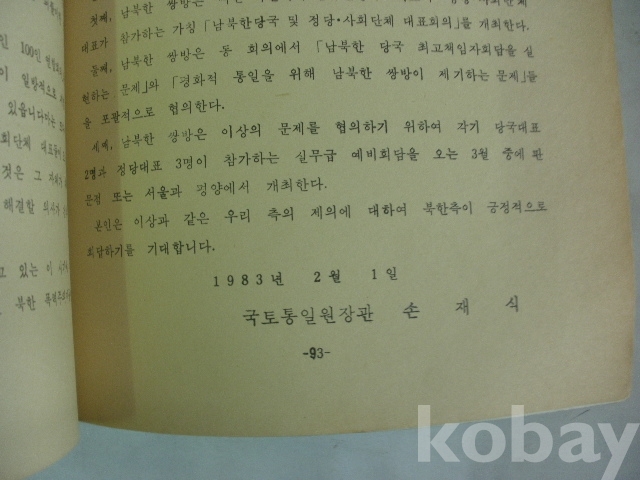 인 100인 연합회
이 일방적으로
있읍니다마는
회단체 대표들
것은 그 자체가
해결할 의사가
고 있는 이
북한
첫째, 남북한 쌍방은
대표가 참가하는 가칭 「남북한당국 및 정당·사회단체 대표회의」를 개최한다.
둘째, 남북한 쌍방은 동 회의에서 「남북한 당국 최고책임자회담을 실
현하는 문제」와 「평화적 통일을 위해 남북한 쌍방이 제기하는 문제」들
을 포괄적으로 협의한다.
세째, 남북한 쌍방은 이상의 문제를 협의하기 위하여 각기 당국대표
2명과 정당대표 3명이 참가하는 실무급 예비회담을 오는 3월 중에 판
문점 또는 서울과 평양에서 개최한다.
본인은 이상과 같은 우리 측의 제의에 대하여 북한측이 긍정적으로
회답하기를 기대합니다.
1983년 2월 1일
국토통일원장관 손 재 식
-93-
kobay